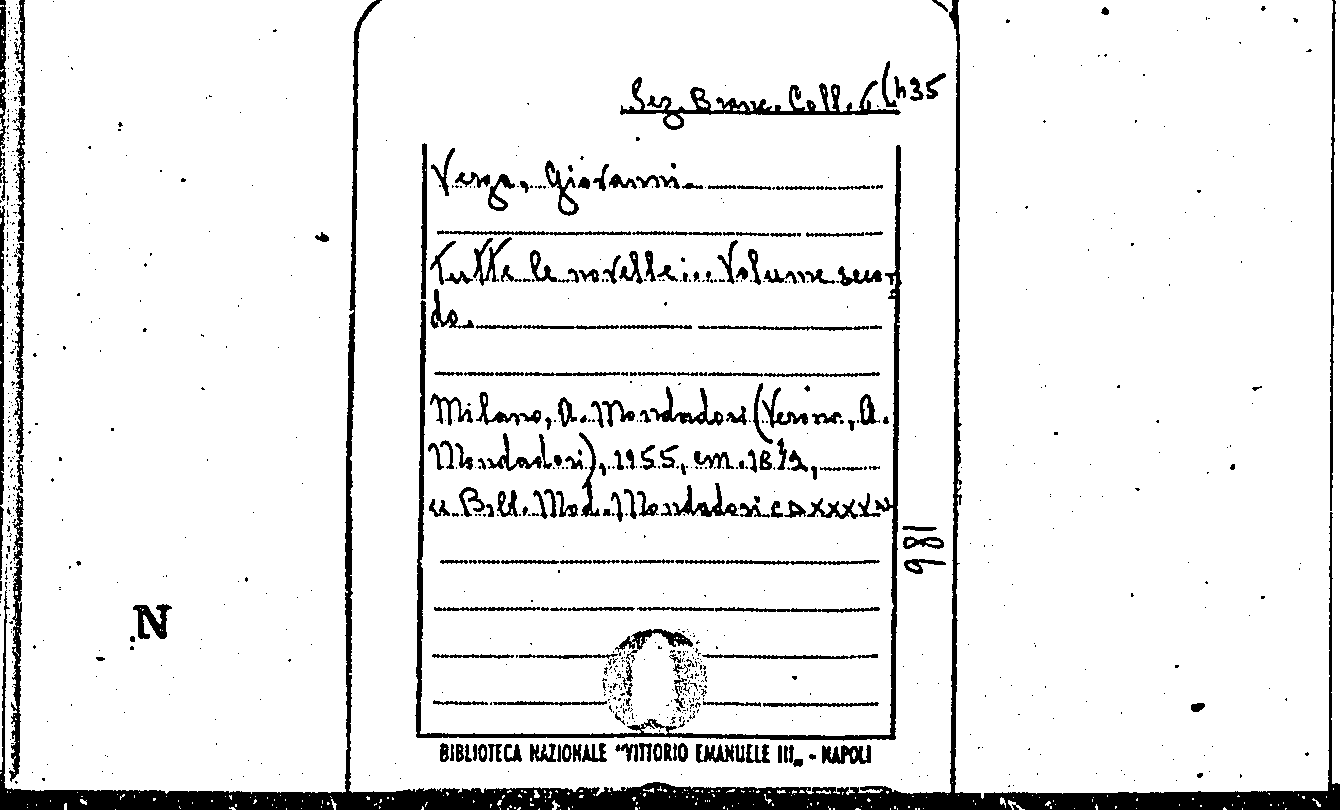 Sez. Branc. Coll. 6(h35
Verga, Giovanni.
Tutte le novelle... Volume secon
do.
Milano, A. Mondadori (Verona, A.
Mondadori), 1955, cm. 18½,
Bibl. Mod. Mondadori
981
N
BIBLIOTECA NAZIONALE "VITTORIO EMANUELE III„ - NAPOLI